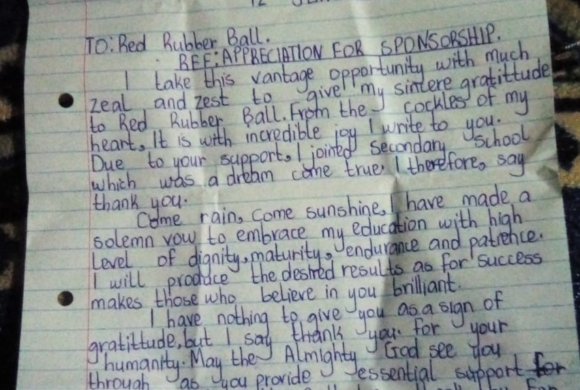 TO: Red Rubber Ball.
REF: APPRECIATION FOR SPONSORSHIP.
I take this vantage opportunity with much
zeal and zest to give my sintere gratittude
to Red Rubber Ball. From the cockles of my
heart, It is with incredible joy I write to you.
Due to your support, I joined Secondary School
which was a dream come true. I therefore, say
thank you.
Come rain, come sunshine, I have made a
solemn vow to embrace my education with high
level of dignity, maturity, endurance and patience.
I will produce the desired results as for success
makes those who believe in you brilliant.
I have nothing to give you as a sign of
gratittude, but I say thank you for your
humanity. May the Almighty God see you
through as you provide essential support for